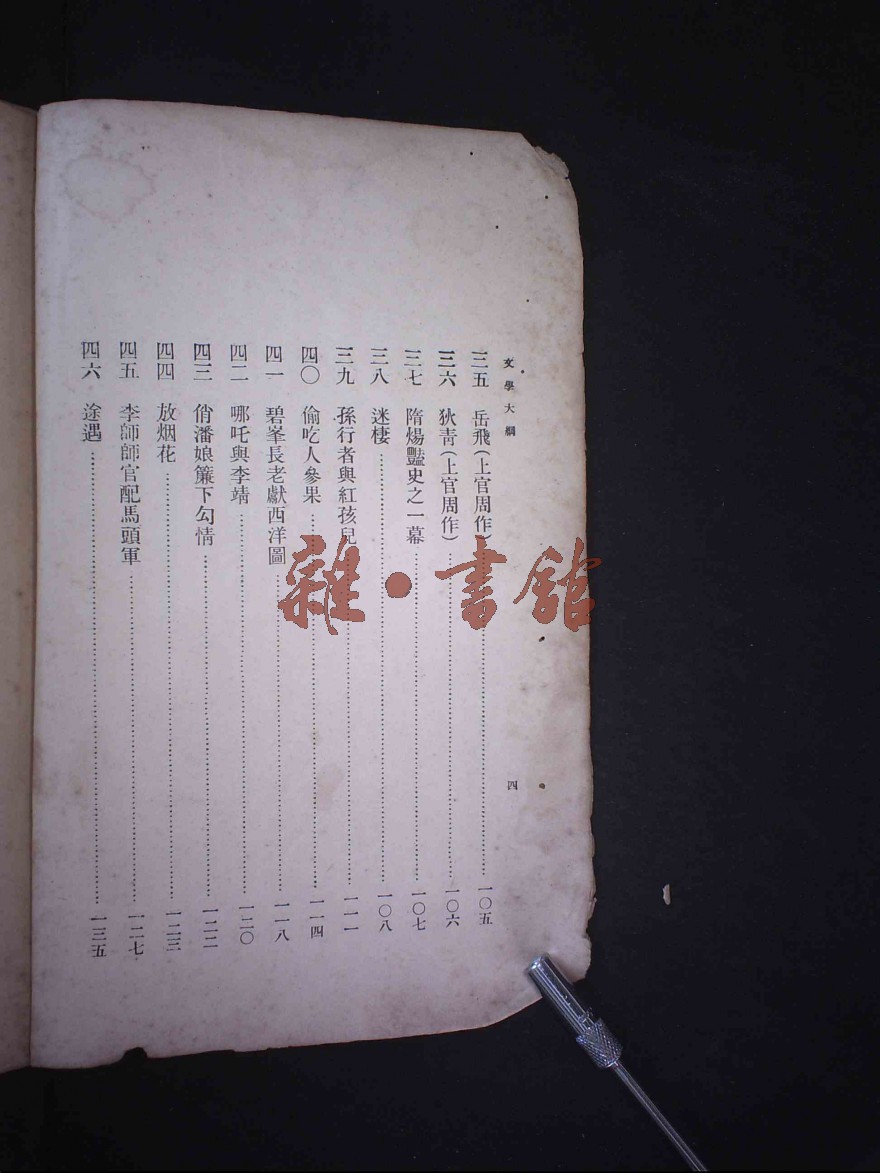 文學大綱
四
三五 岳飛(上官周作)……一〇五
三六 狄靑(上官周作)……一〇六
三七 隋煬豔史之一幕……一〇七
三八 迷棲……一〇八
三九 孫行者與紅孩兒……一一一
四〇 偷吃人參果……一一四
四一 碧峯長老獻西洋圖……一一八
四二 哪吒與李靖……一二〇
四三 俏潘娘簾下勾情……一二二
四四 放烟花……一二三
四五 李師師官配馬頭軍……一二七
四六 途遇……一三五
雜·書館